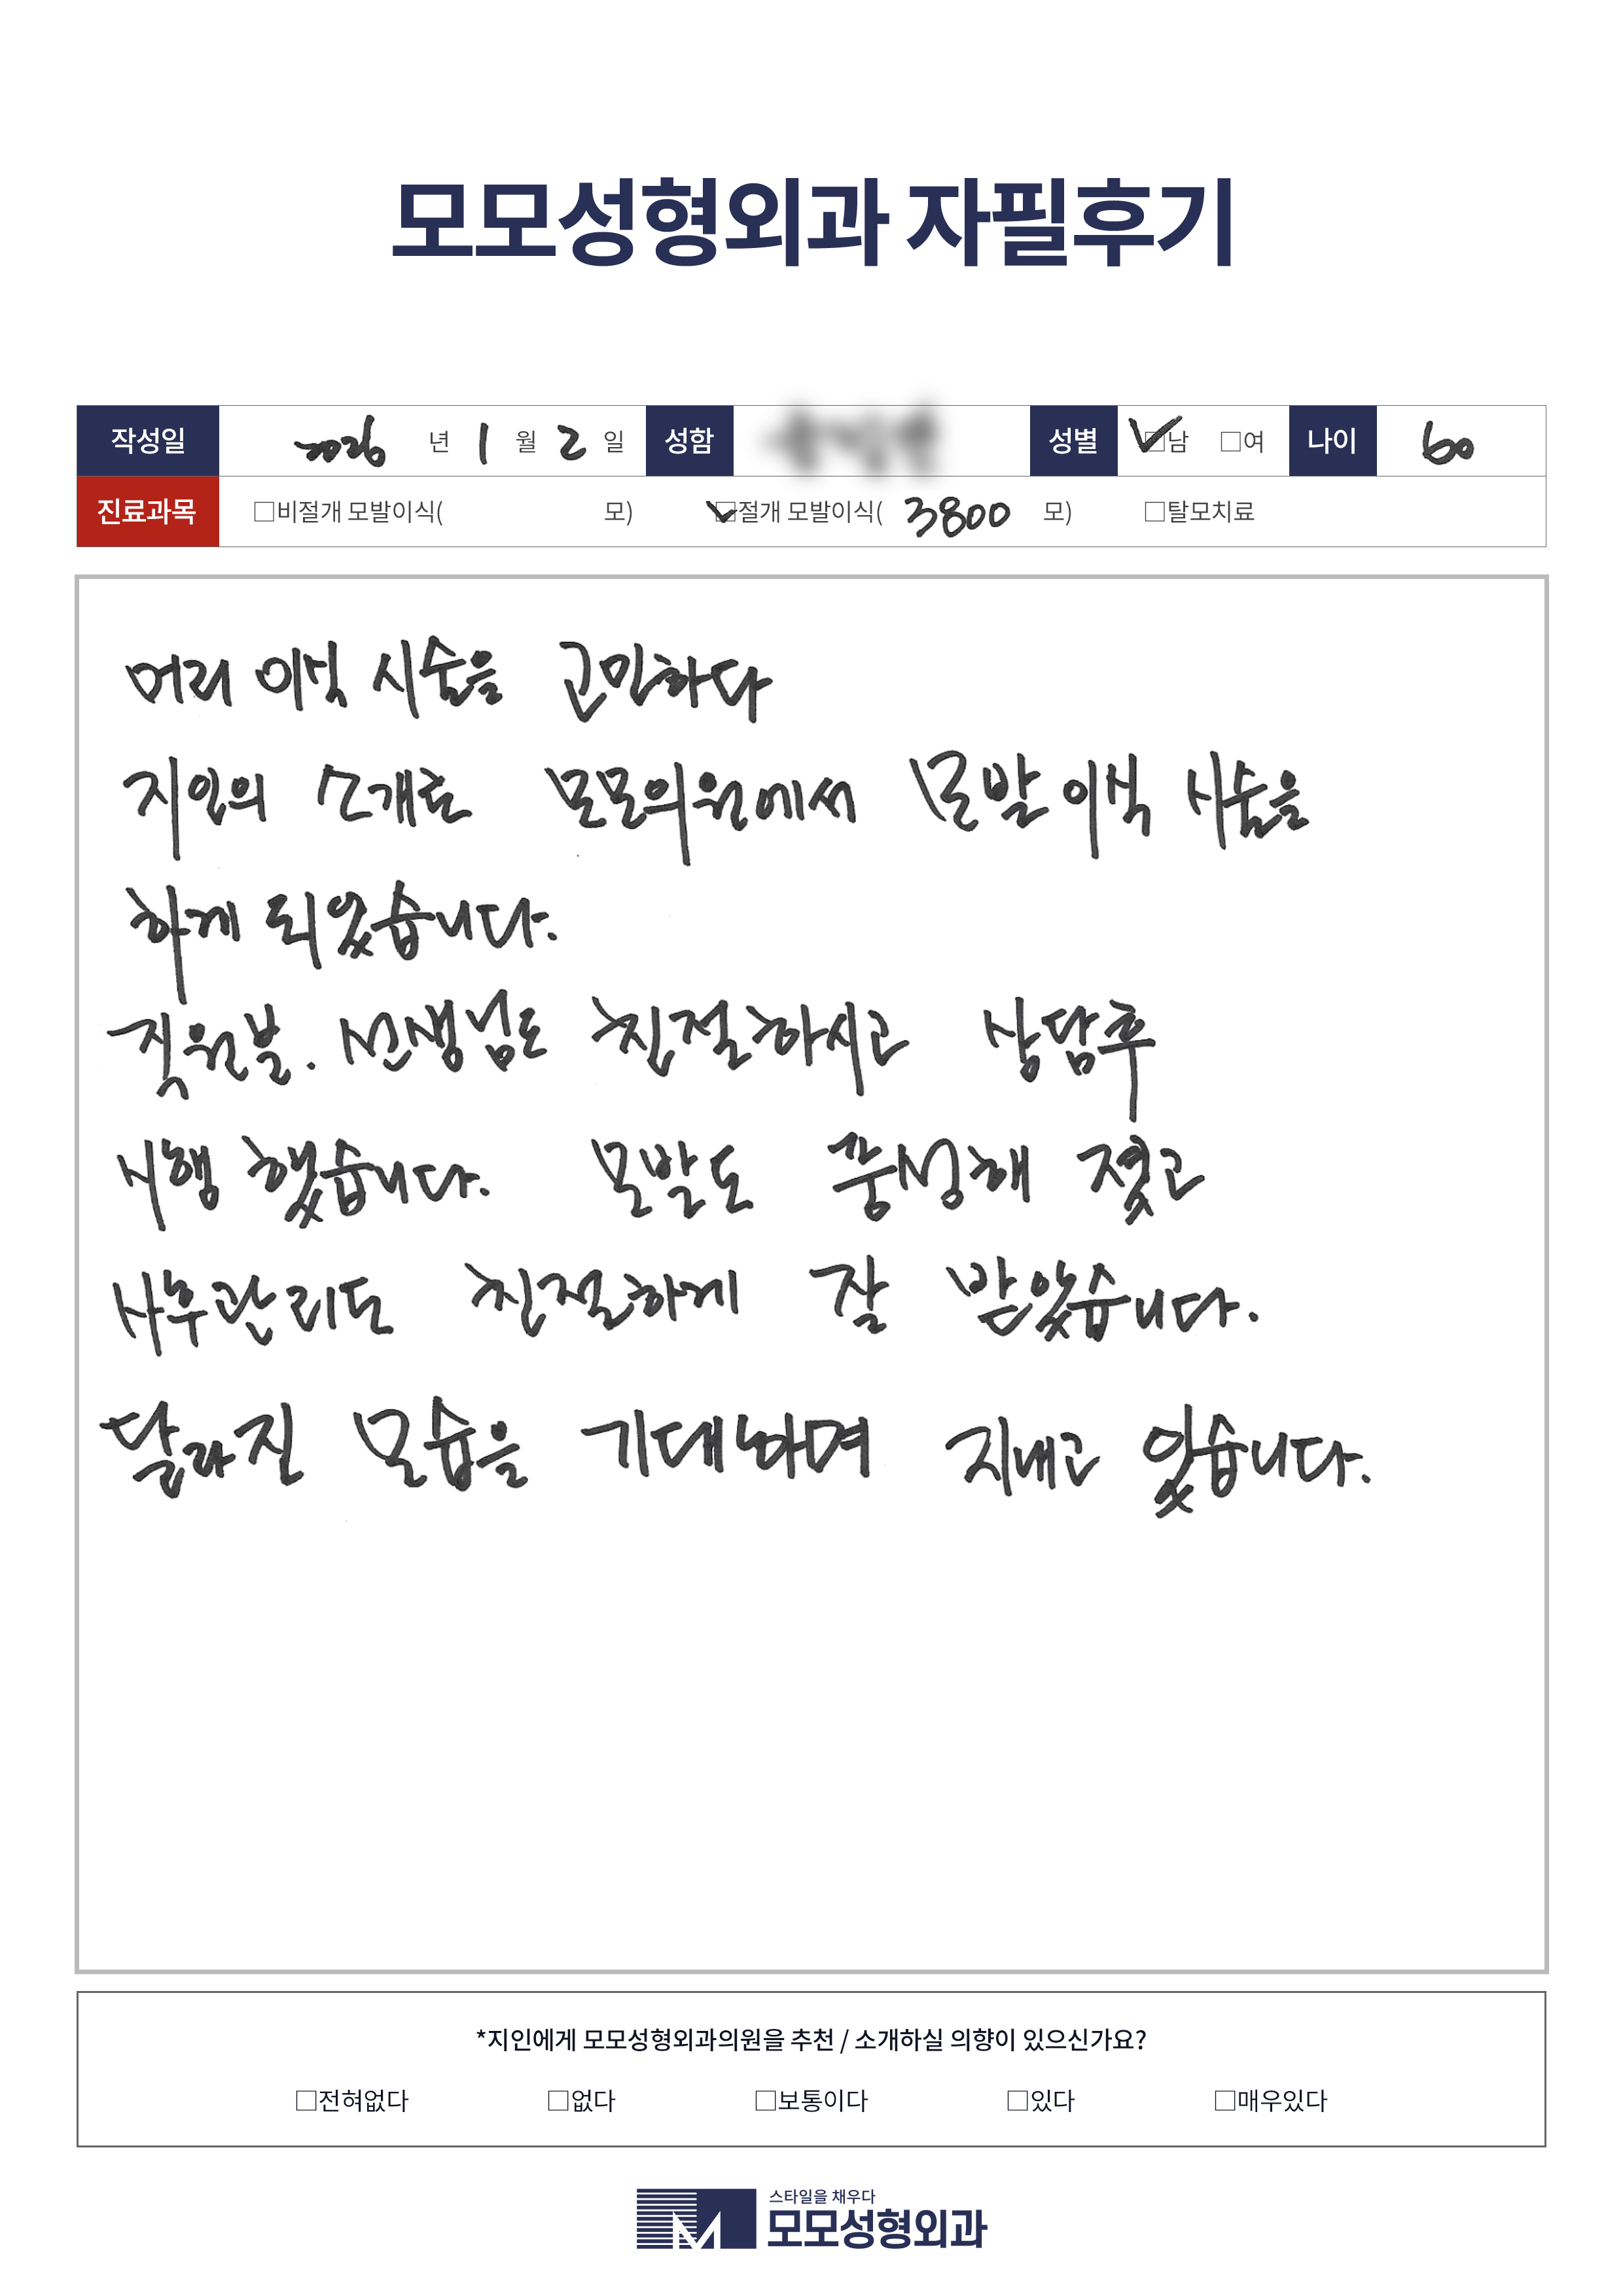 모모성형외과 자필후기
작성일 2026 년 1 월 2 일 성함 성별 ☑남 □여 나이 60
진료과목 □비절개 모발이식( 모) ☑절개 모발이식( 3800 모) □탈모치료
머리 이식 시술을 고민하다
지인의 소개로 모모의원에서 모발 이식 시술을
하게 되었습니다.
직원분. 선생님도 친절하시고 상담후
시행 했습니다. 모발도 풍성해 졌고
사후관리도 친절하게 잘 받았습니다.
달라진 모습을 기대하며 지내고 있습니다.
*지인에게 모모성형외과의원을 추천 / 소개하실 의향이 있으신가요?
□전혀없다 □없다 □보통이다 □있다 □매우있다
스타일을 채우다
모모성형외과